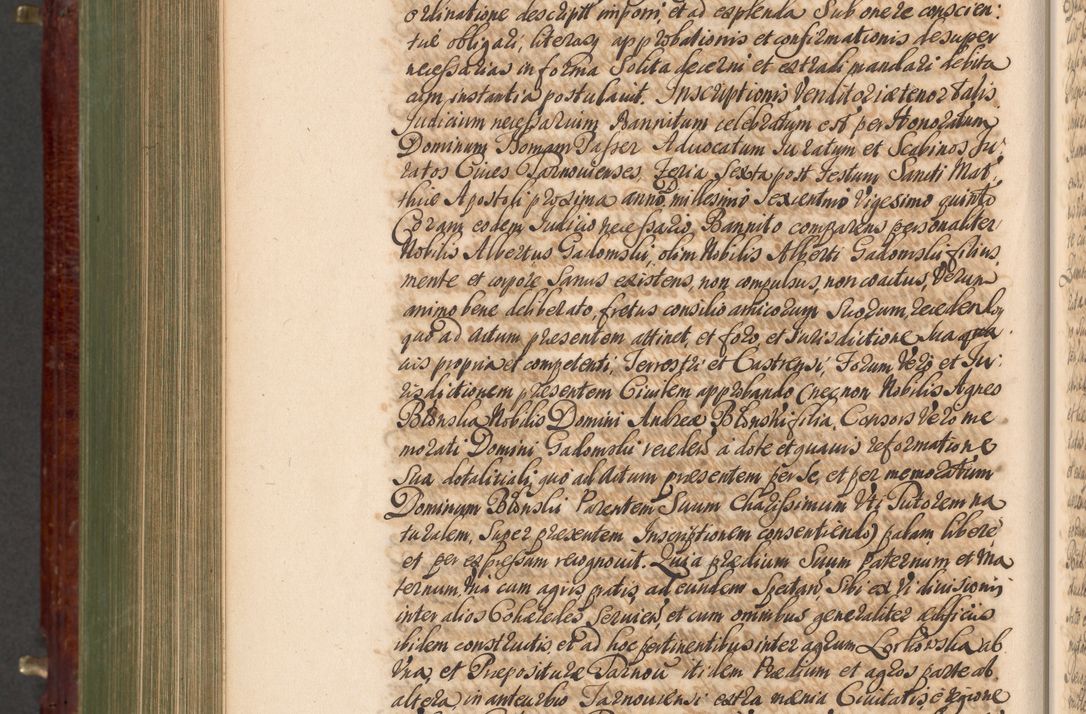 ordinatione descriptt imponi et ad explenda Sub onere conscien:
tiæ obligari, literasq approbationis et confirmationis desuper
necessarias in forma Solita decerni et extradi mandari debita
cum instantia postulauit. Inscriptionis Venditoriæ tenor talis
Judicium necessarium Bannitum celebratum est per Honoratum
Dominum Thomam Passer Aduocatum Juratum et Scabinos Ju:
ratos Ciues Tarnouienses, Feria Sexta post Festum Sancti Mat:
thiæ Apostoli proxima anno millesimo Sexcentmo Vigesimo quinto
Coram eodem Judicio necessario Bannito comparens personaliter
Nobilis Albertus Gadomski, olim Nobilis Alberti Gadomski filius
mente et corpore Sanus existens, non compulsus, non coactus, Verum
animo bene deliberato, fretus consilio amicorum Suorum, recedendoq
quo ad actum presentem attinet, et foro, et Jurisdictione Sua qua
uis propria et competenti, Terrestri et Castrensi, Forum Vero et Ju:
risdictionem presentem Ciuilem approbando (nec non Nobilis Agnes
Błonska Nobilis Domini Andreæ Błonski filia, Consors Vero me
morati Domini Gadomski recedens a dote et quauis reformatione
Sua dotalitiali, quo ad Actum præsentem per Se, et per memoratum
Dominum Błonski Parentem Suum charissimum Uti Tutorem na
turalem, Super præsentem Inscriptionem consentiendo) palam libere
et per expressum recognouit. Quia prædium Suum Paternum et Ma
ternum, Una cum agris, pratis, ad eundem Spectan, Sibi ex Vi diuisionis
inter alios Cohæredes Seruien, et cum omnibus generaliter ædificiis
ibidem constructis, et ad hoc pertinentibus inter agrum ab
Una, et Præpositure Tarnou itidem Prædium et agros parte ab
altera in anteurbio Tarnouiensi extra mænia Ciuitatis e regione